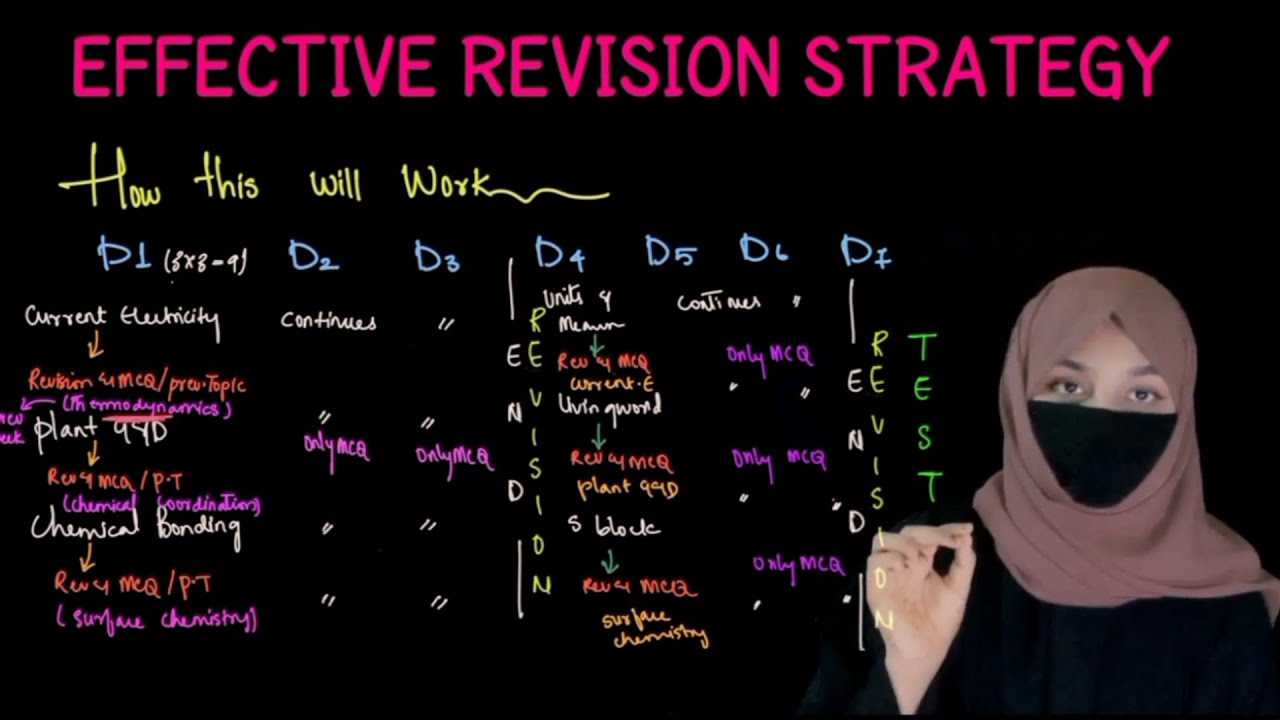 EFFECTIVE REVISION STRATEGY
How this will Work
D1 (3x3=9) D2 D3 D4 D5 D6 D7
Current Electricity continues "
Units & continues "
Mesurm
Revision & MCQ/prev.Topic
(Thermodynamics)
Rev & MCQ only MCQ
Current.E " "
plant G&D " "
only MCQ only MCQ
Livingworld
Rev & MCQ / P.T
(chemical coordination)
Rev & MCQ only MCQ
plant G&D " "
Chemical Bonding " "
S block
Rev & MCQ / P.T
(Surface chemistry) " "
Rev & MCQ only MCQ
surface " "
chemistry
END
REVISION
END
REVISION
TEST